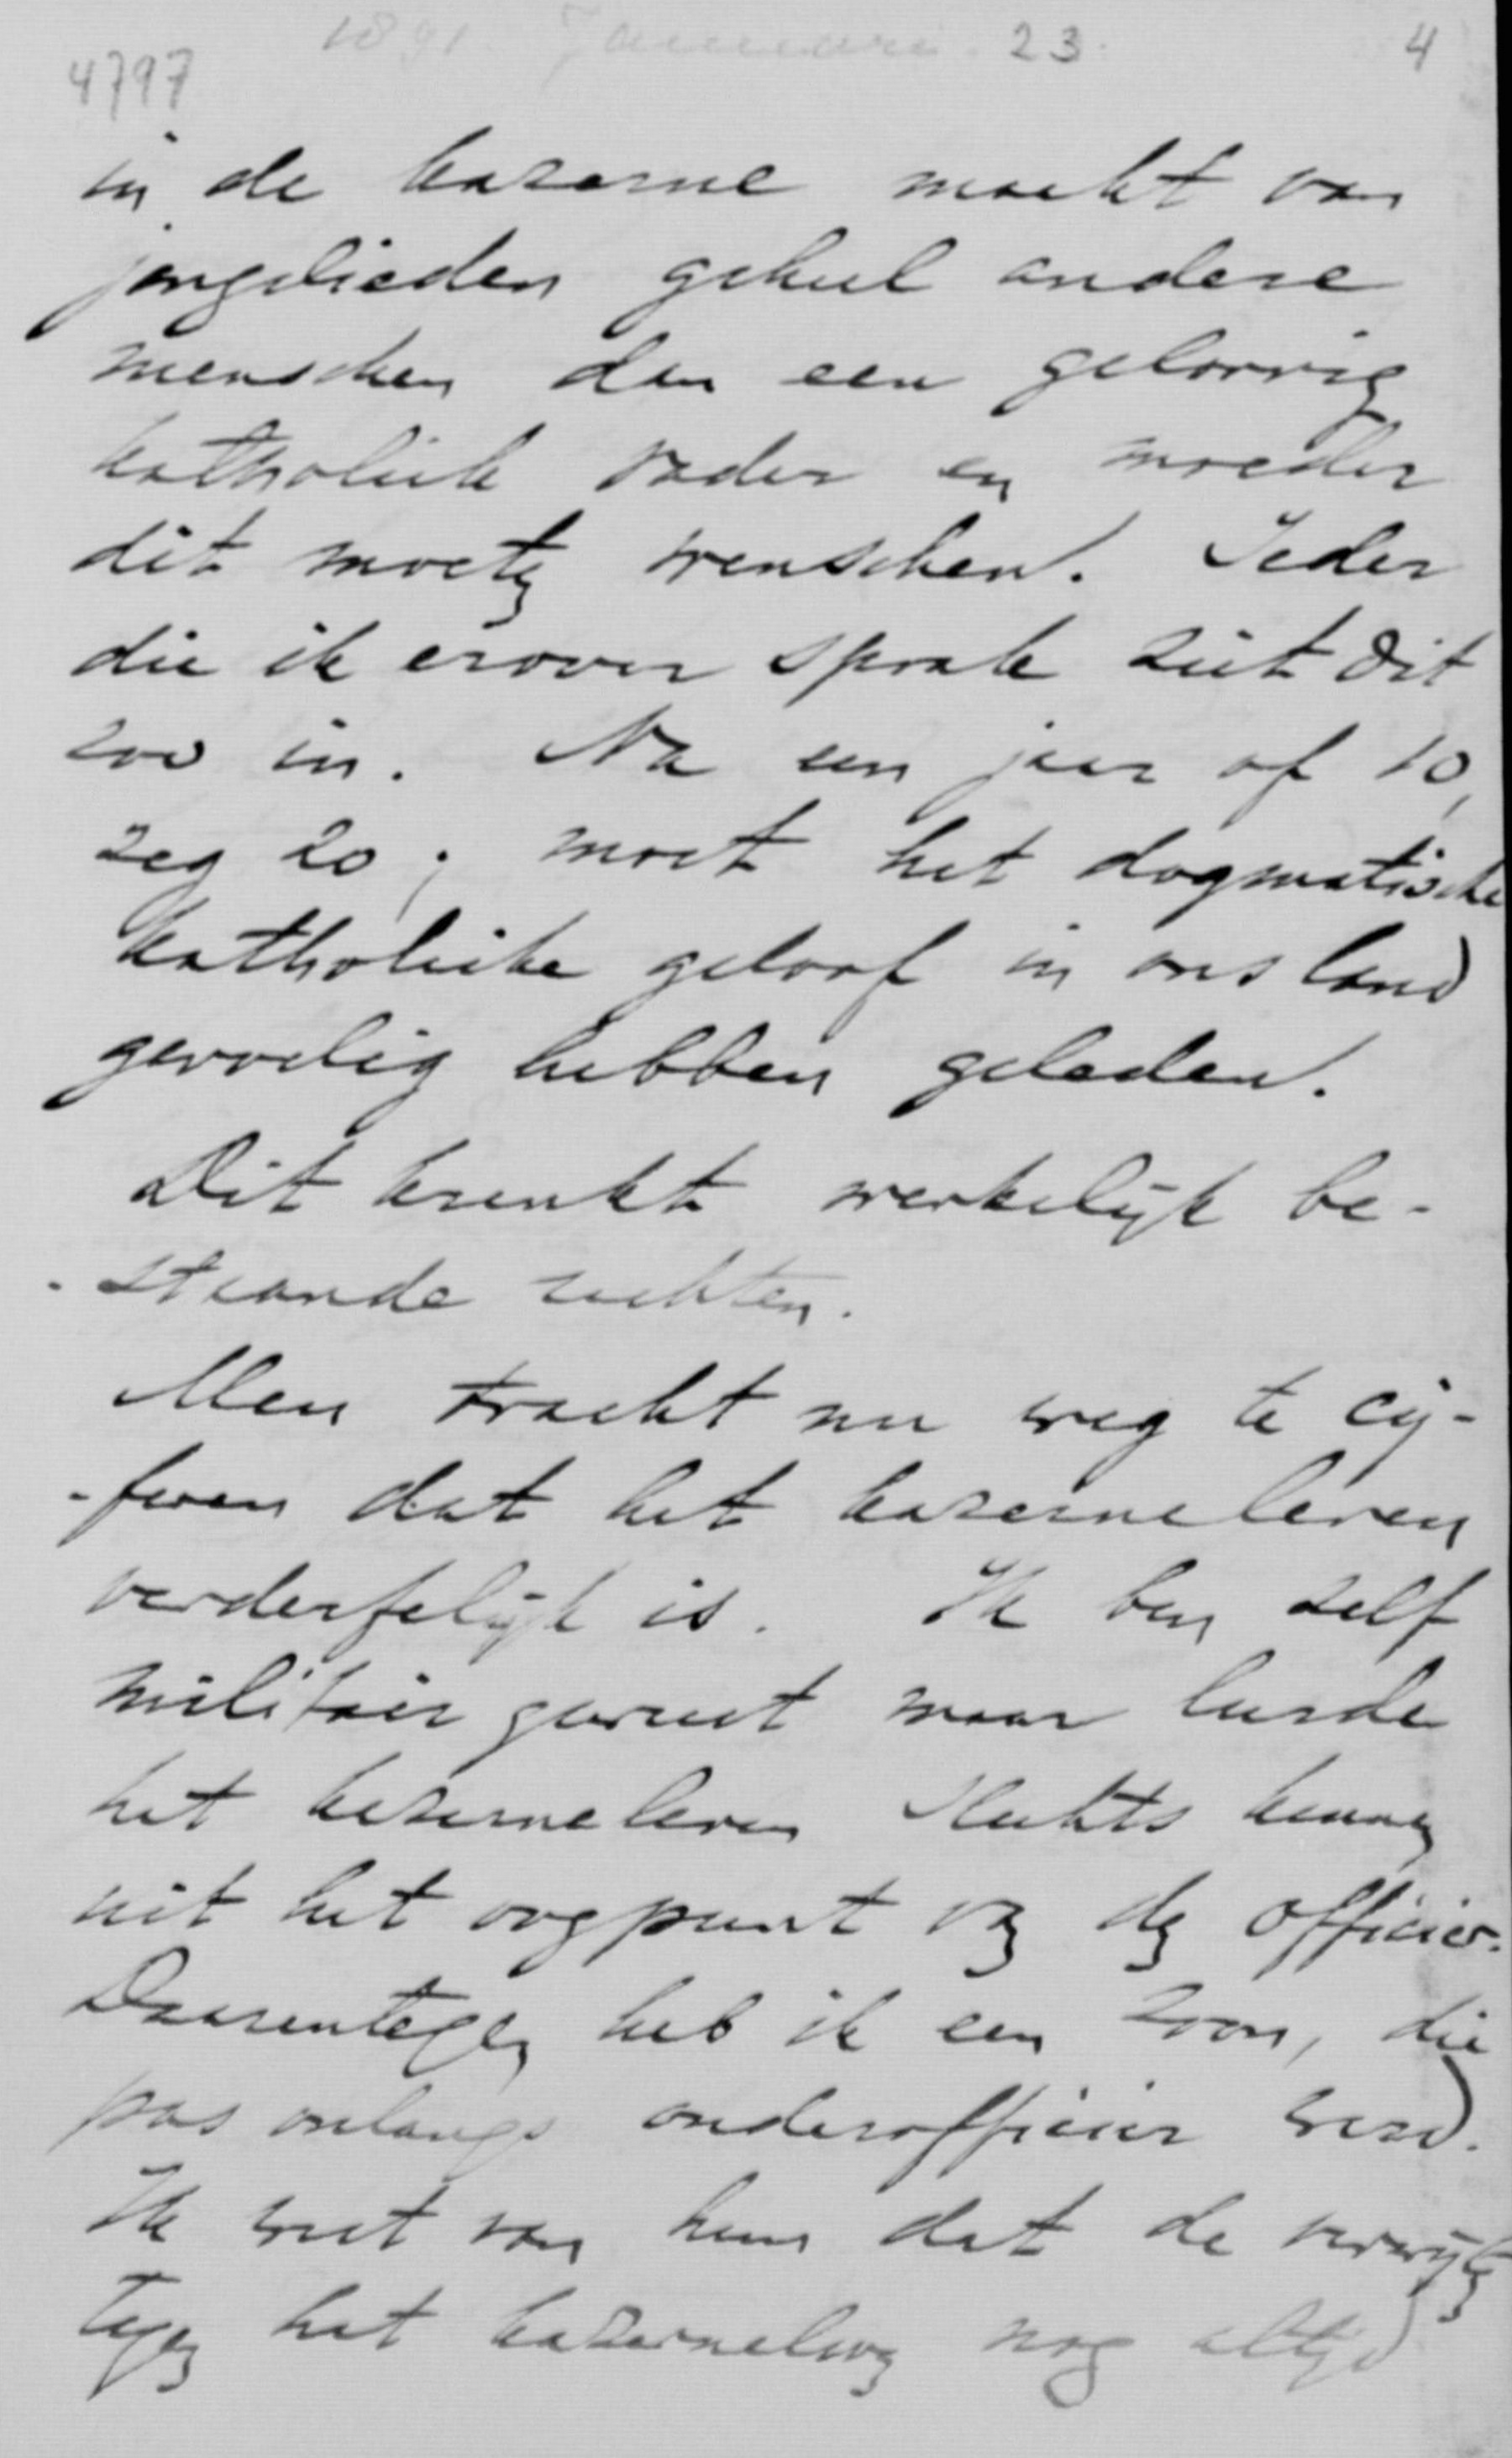 1891 Januari 23.
4
4797
in de kazerne maakt van
jongelieden geheel andere
menschen dan een geloovig
katholiek vader en moeder
dit moeten wenschen. Ieder
die ik erover sprak ziet dit
zoo in. Na een jaar of 10,
zeg 20, moet het dogmatische
katholieke geloof in ons land
gevoelig hebben geleden.
Dit krenkt werkelijk be-
-staande rechten.
Men tracht nu weg te cij-
-feren dat het kazerneleven
verderfelijk is. Ik ben zelf
militair geweest maar leerde
het kazerneleven slechts kennen
uit het oogpunt van den officier.
Daarentegen heb ik een zoon, die
pas onlangs onderofficier werd.
Ik weet van hem dat de verwijten
tegen het kazerneleven nog altijd